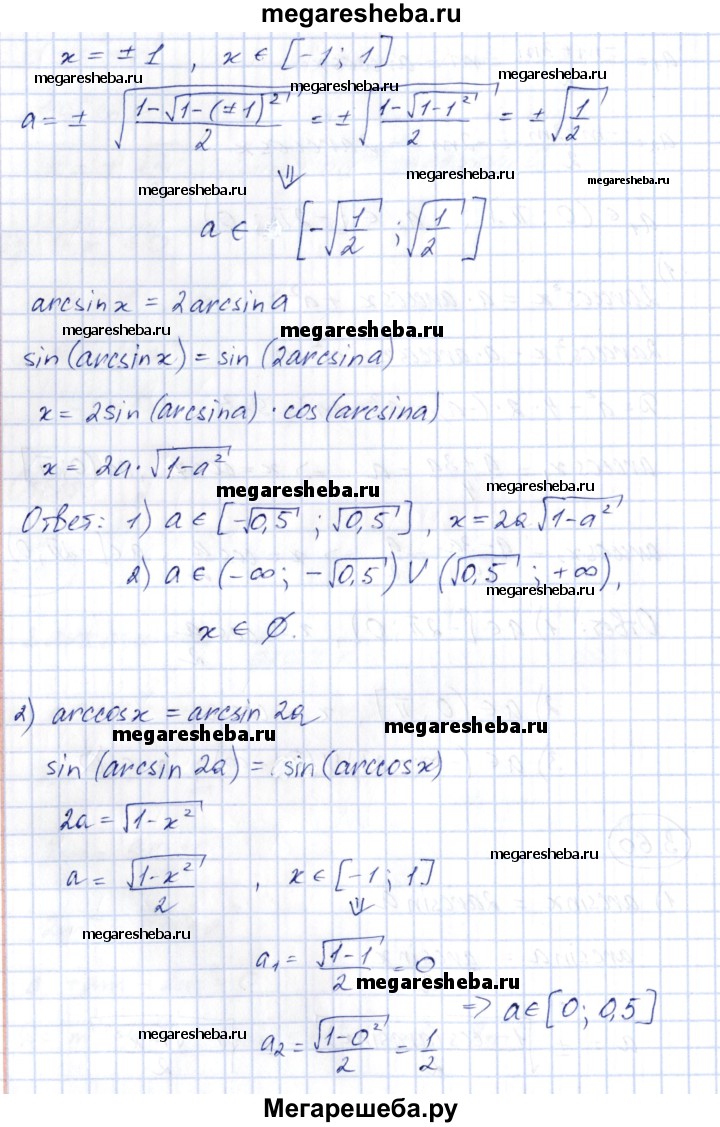 megaresheba.ru
x = ± 1 , x ∈ [-1 ; 1]
megaresheba.ru megaresheba.ru megaresheba.ru
a = ± √((1-√(1-(±1)²))/2) = ± √((1-√(1-1²))/2) = ± √(1/2)
megaresheba.ru megaresheba.ru megaresheba.ru
⇓
a ∈ [-√(1/2) ; √(1/2)]
arcsin x = 2arcsin a
megaresheba.ru megaresheba.ru megaresheba.ru
sin (arcsin x) = sin (2arcsin a)
x = 2sin (arcsin a) · cos (arcsin a)
x = 2a · √(1-a²)
megaresheba.ru megaresheba.ru
Ответ: 1) a ∈ [-√0,5 ; √0,5] , x = 2a √(1-a²)
2) a ∈ (-∞; -√0,5) ∪ (√0,5 ; +∞),
megaresheba.ru
x ∈ ∅.
2) arccos x = arcsin 2a
megaresheba.ru megaresheba.ru
sin (arcsin 2a) = sin (arccos x)
2a = √(1-x²)
megaresheba.ru
a = √(1-x²)/2 , x ∈ [-1 ; 1]
⇓
megaresheba.ru
a₁ = √(1-1)/2 = 0
megaresheba.ru
⇒ a ∈ [0; 0,5]
megaresheba.ru
a₂ = √(1-0²)/2 = 1/2
Мегарешеба.ру